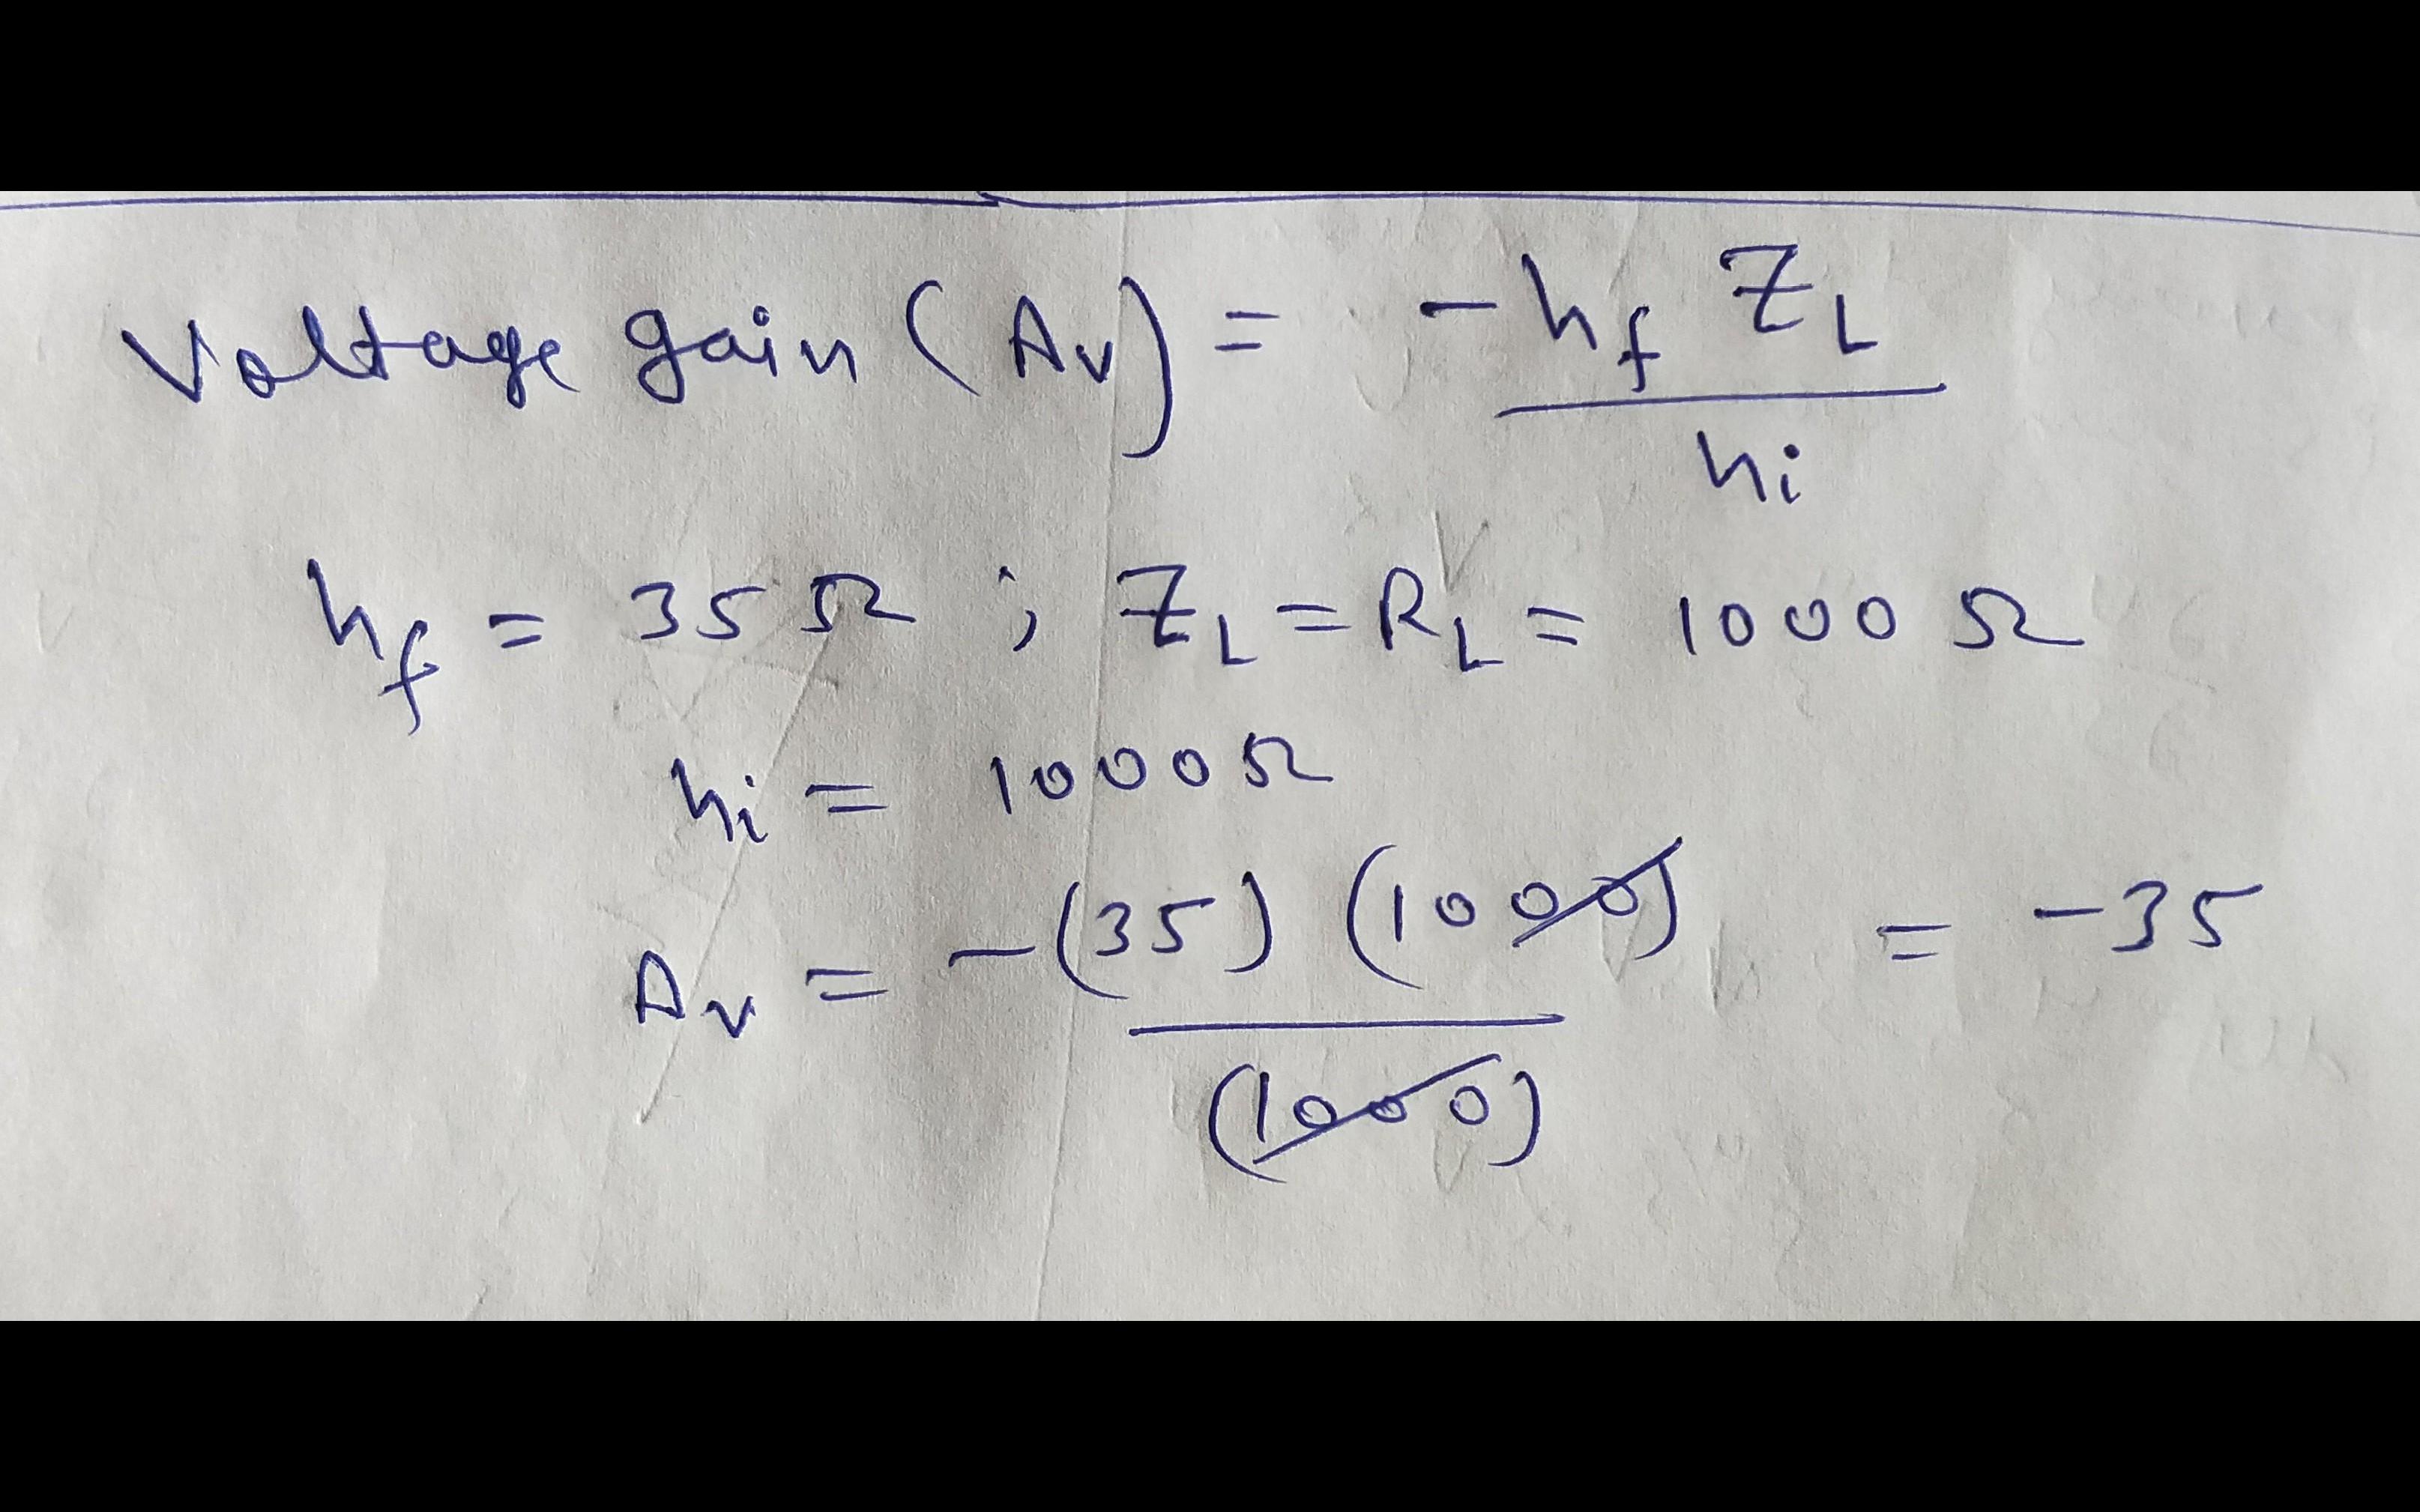 Voltage gain (Av) = -hf ZL / hi
hf = 35 Ω ; ZL = RL = 1000 Ω
hi = 1000 Ω
Av = -(35) (1000) / (1000) = -35